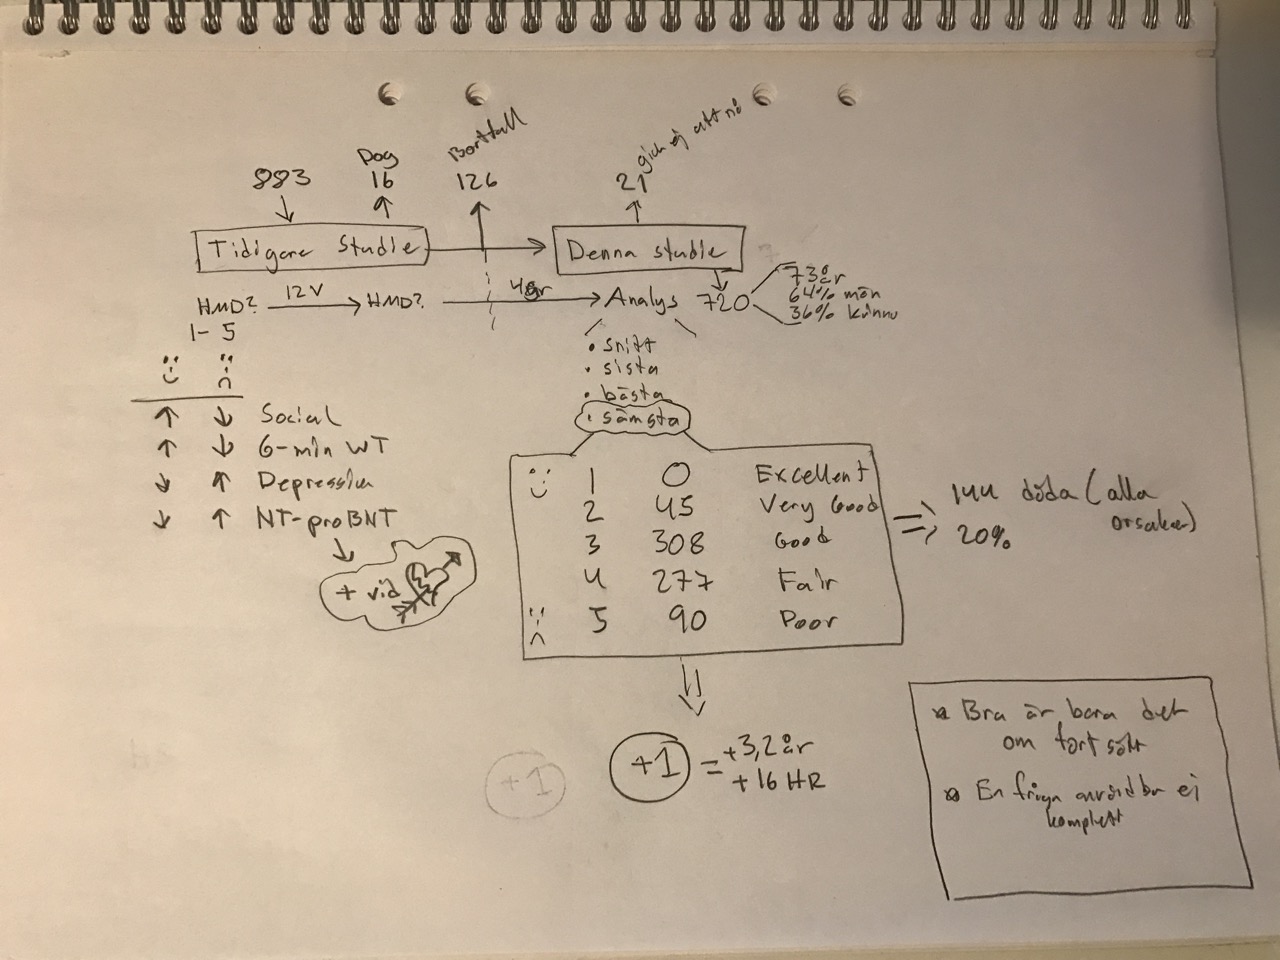 883
Dog
16
Bortfall
126
gick ej att nå
21
Tidigare Studie
Denna studie
HMD? 12V HMD? 4år Analys 720
73 år
64% män
36% kvinnor
1-5
Social
6-min WT
Depression
NT-proBNT
+ vid
• snitt
• sista
• bästa
• sämsta
1 0 Excellent
2 45 Very Good
3 308 Good
4 277 Fair
5 90 Poor
=> 144 döda (alla
orsaker)
20%
+1 = +3,2 år
+16 HR
+1
Bra är bara det
om fort sött
En fråga användbar ej
komplett